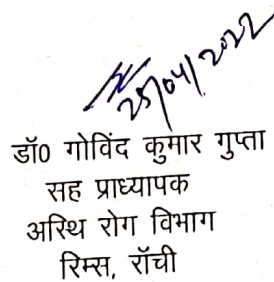 25/04/2022
डॉ0 गोविंद कुमार गुप्ता
सह प्राध्यापक
अस्थि रोग विभाग
रिम्स, रॉची